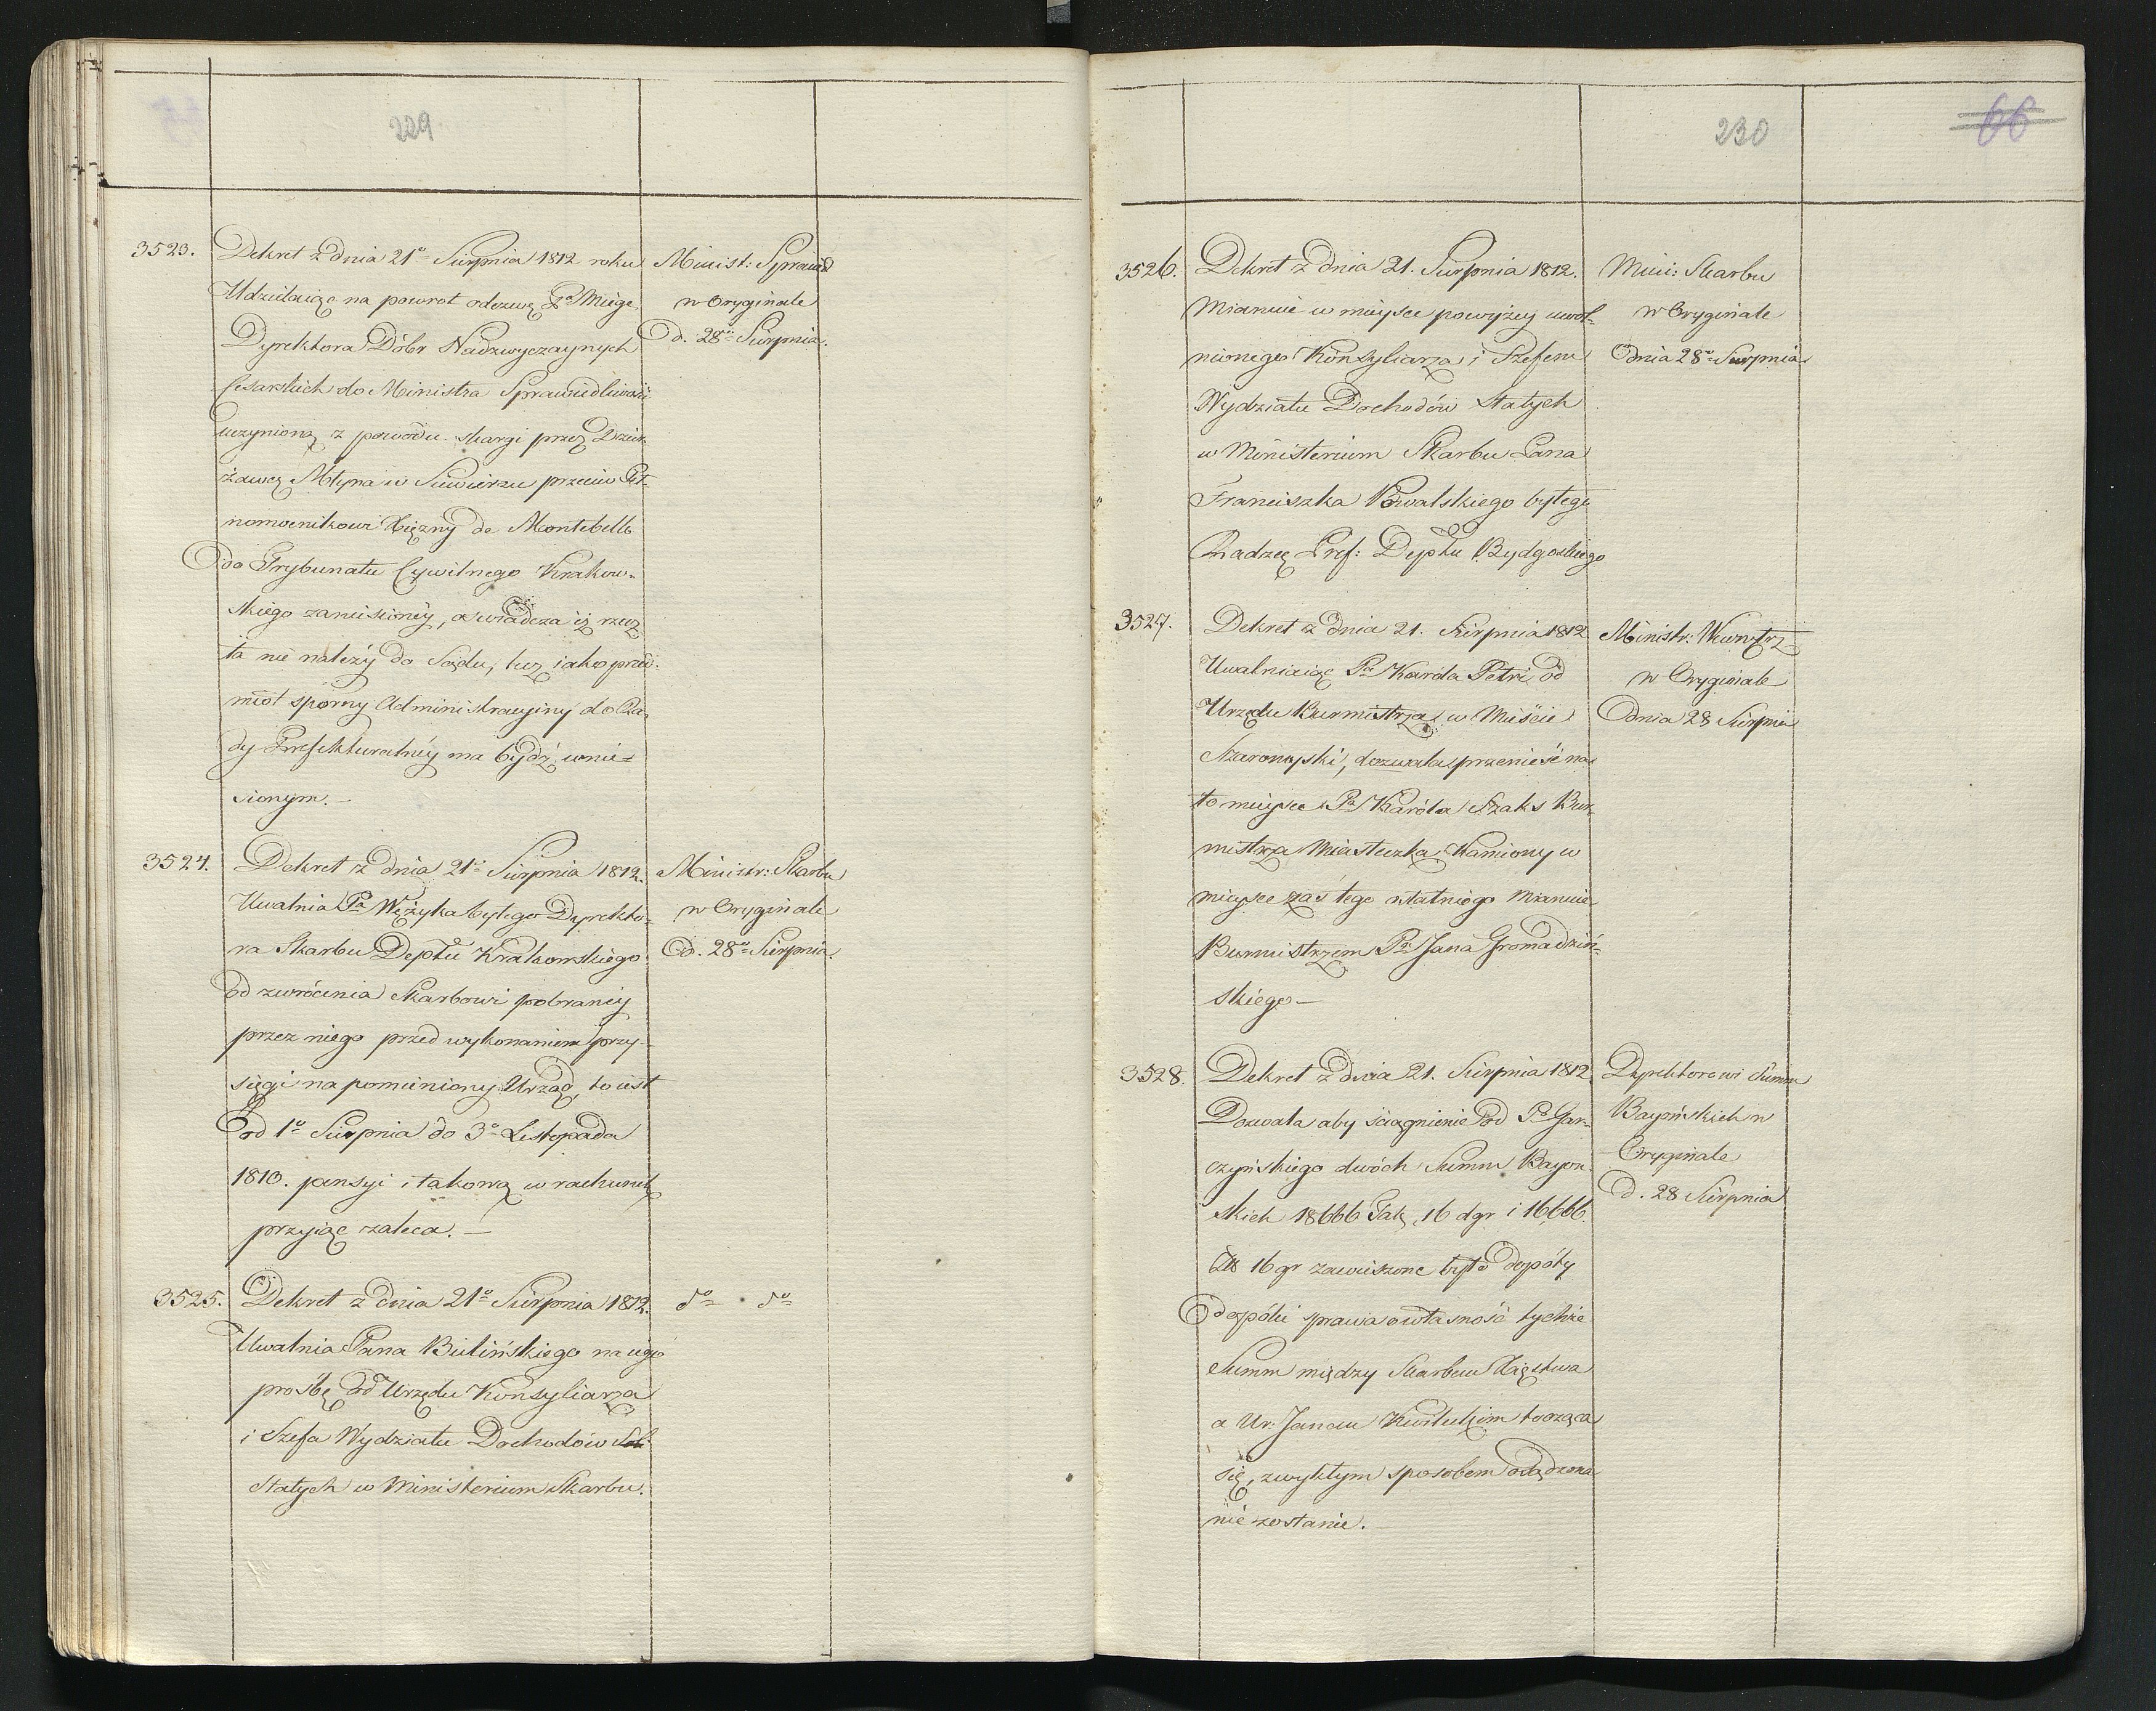 229
3523. Dekret z dnia 21º Sierpnia 1812 roku
Udzielaiąc na powrot odezwę Pª Miége
Dyrektora Dóbr Nadzwyczaynych
Cesarskich do Ministra Sprawiedliwości
uczynioną z powodu skargi przez Dzier-
żawcę Młyna w Siewierzu przeciw Peł-
nomocnikowi Xiężny de Montebello
do Trybunału Cywilnego Krakow-
skiego zaniesioney, oświadcza iż rzecz
ta nie należy do Sądu, lecz iako przed-
miot sporny Administracyiny do Ra-
dy Prefekturalnéy ma bydź wnie-
sionym.—
Minist: Sprawied
w Oryginale
D. 28º Sierpnia.
3524. Dekret z dnia 21º Sierpnia 1812.
Uwalnia Pª Wężyka byłego Dyrekto-
ra Skarbu Deptu Krakowskiego
od zwrócenia Skarbowi pobraney
przez niego przed wykonaniem przy-
sięgi na pomieniony Urząd, to iest
od 1º Sierpnia do 3º Listopada
1810. pensyi i takową w rachunek
przyiąć zaleca.—
Ministr: Skarbu
w Oryginale
D. 28º Sierpnia.
3525. Dekret z dnia 21º Sierpnia 1812.
Uwalnia Pana Bielińskiego na iego
prośbę od Urzędu Konsyliarza
i Szefa Wydziału Dochodów
Stałych w Ministerium Skarbu.
dº dº
230
66
3526. Dekret z dnia 21. Sierpnia 1812.
Mianuie w mieysce powyżey uwol-
nionego Konsyliarza i Szefem
Wydziału Dochodów Stałych
w Ministerium Skarbu Pana
Franciszka Kowalskiego byłego
Radzcę Pref: Deptu Bydgoskiego
Mini: Skarbu
w Oryginale
Dnia 28º Sierpnia
3527. Dekret z dnia 21. Sierpnia 1812
Uwalniaiąc Pª Karola Petri od
Urzędu Burmistrza w Mieście
dozwala przenieść na
to mieysce Pª Karóla Szaks Bur-
mistrza Miasteczka Kamiony w
mieysce zaś tego ostatniego mianuie
Burmistrzem Pª Jana Gromadziń-
skiego—
Ministr: Wewnętrz
w Oryginale
Dnia 28 Sierpnia
3528. Dekret z dnia 21. Sierpnia 1812
Dozwala aby ściągnienie od Pª Gar-
czyńskiego dwóch Summ Bayon-
skich 18666 Tal, 16 dgr i 16,666.
Zł 16 gr zawieszone było dopóty
dopóki sprawa o własność tychże
Summ między Skarbem Xięstwa
a Ur. Janem tocząca
się, zwykłym sposobem osądzona
nie zostanie.—
Dyrektorowi Summ
Bayońskich w
Oryginale
D. 28 Sierpnia